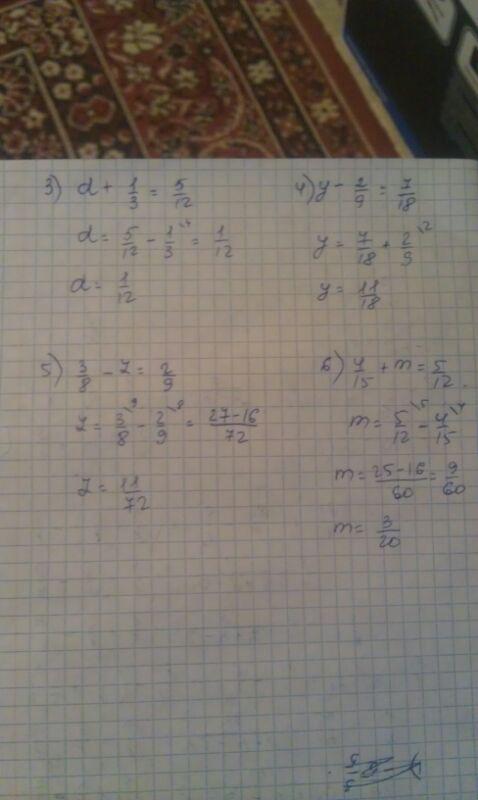 3) d + 1/3 = 5/12
d = 5/12 - 1/3^\4 = 1/12
d = 1/12
4) y - 2/9 = 7/18
y = 7/18 + 2/9^\2
y = 11/18
5) 3/8 - z = 2/9
z = 3/8^\9 - 2/9^\8 = (27-16)/72
z = 11/72
6) 4/15 + m = 5/12
m = 5/12^\5 - 4/15^\4
m = (25-16)/60 = 9/60
m = 3/20